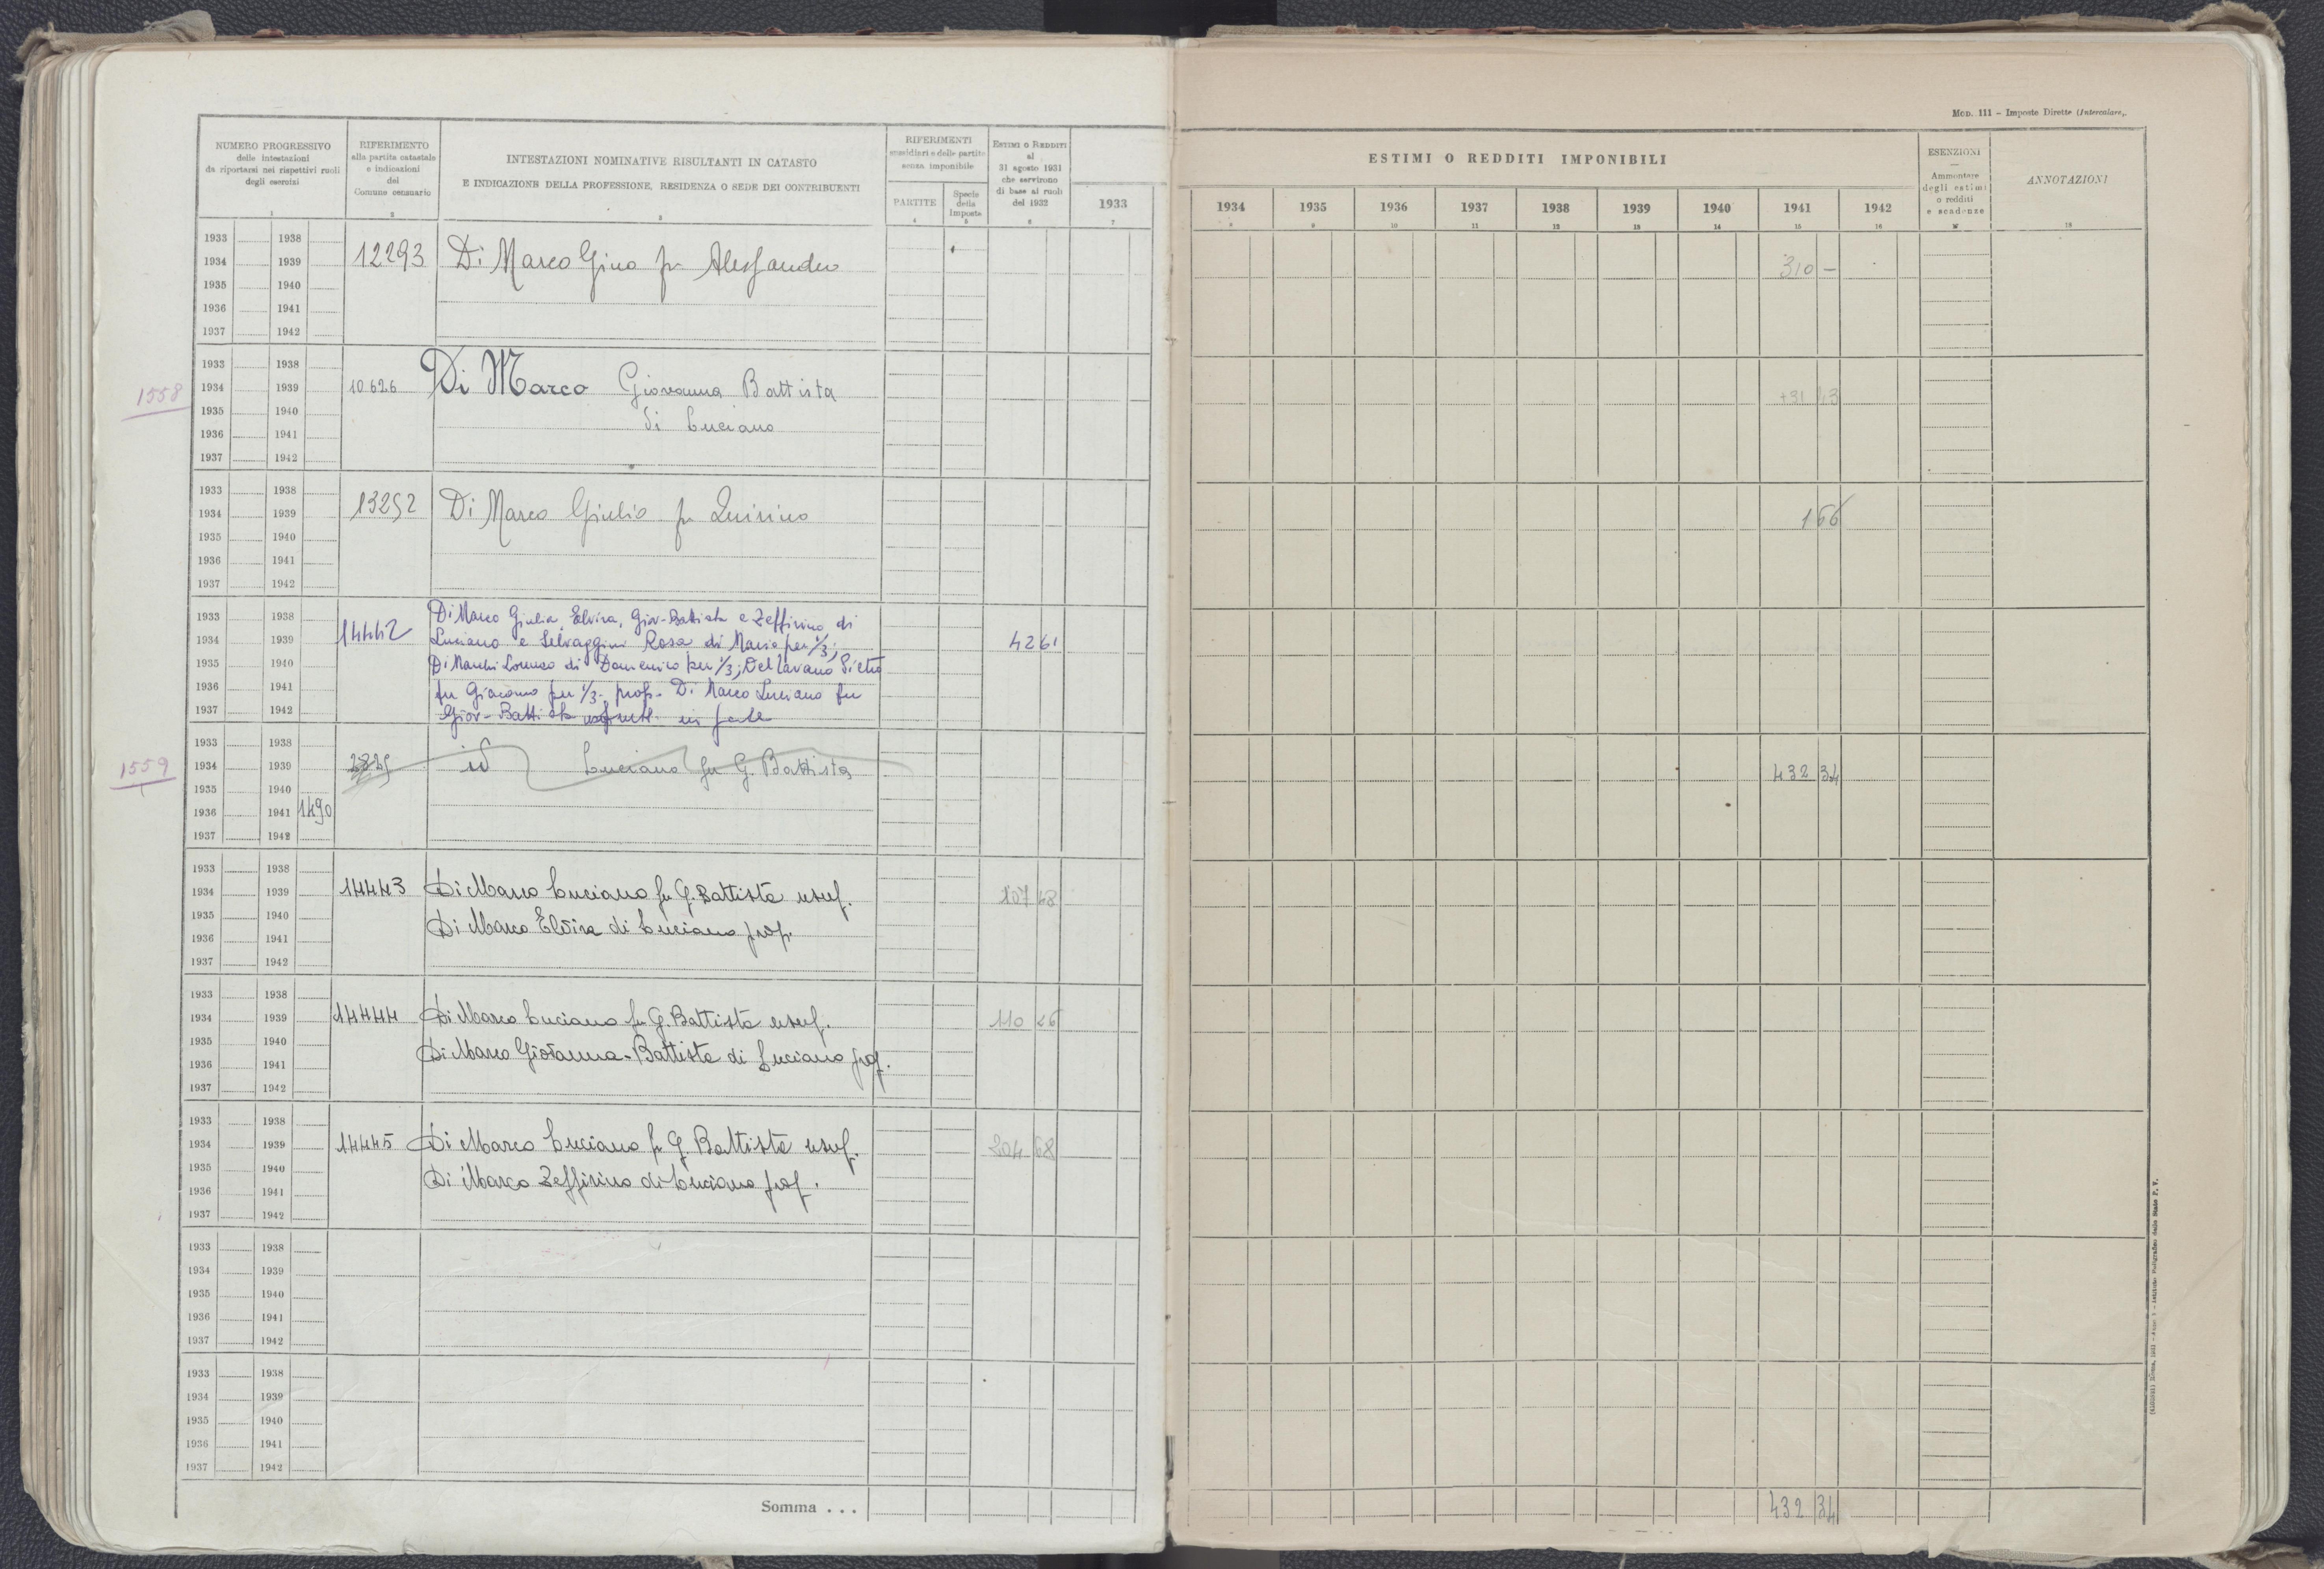 MOD. 111 - Imposte Dirette (Intercalare).
NUMERO PROGRESSIVO
delle intestazioni
da riportarsi nei rispettivi ruoli
degli esercizi
1
RIFERIMENTO
alla partita catastale
e indicazioni
del
Comune censuario
2
INTESTAZIONI NOMINATIVE RISULTANTI IN CATASTO
E INDICAZIONE DELLA PROFESSIONE, RESIDENZA O SEDE DEI CONTRIBUENTI
3
RIFERIMENTI
sussidiari e delle partite
senza imponibile
PARTITE
4
Specie
della
Imposte
5
ESTIMI O REDDITI
al
31 agosto 1931
che servirono
di base ai ruoli
del 1932
6
1933
7
ESTIMI O REDDITI IMPONIBILI
1934 1935 1936 1937 1938 1939 1940 1941 1942
8 9 10 11 12 13 14 15 16
ESENZIONI
Ammontare
degli estimi
o redditi
e scadenze
17
ANNOTAZIONI
18
1933 1938
1934 1939 12293 Di Marco Gino fu Alessandro 310 -
1935 1940
1936 1941
1937 1942
1933 1938
1558 1934 1939 10626 Di Marco Giovanna Battista +31 43
1935 1940 di Luciano
1936 1941
1937 1942
1933 1938
1934 1939 13252 Di Marco Giulio fu Quirino 166
1935 1940
1936 1941
1937 1942
1933 1938 Di Marco Giulia, Elvira, Giov-Battista e Zeffirino di
1934 1939 14442 Luciano e Selvaggini Rosa di Mario per 1/3; 4261
1935 1940 Di Marchi Lorenzo di Domenico per 1/3; Del Lavano Pietro
1936 1941 fu Giacomo per 1/3 - prop. - Di Marco Luciano fu
1937 1942 Giov-Battista usufrutt. in parte
1933 1938
1559 1934 1939 2825 id Luciano fu G. Battista 432 34
1935 1940
1936 1941 1490
1937 1942
1933 1938
1934 1939 14443 Di Marco Luciano fu G. Battista usuf. 107 68
1935 1940
1936 1941 Di Marco Elvira di Luciano prop.
1937 1942
1933 1938
1934 1939 14444 Di Marco Luciano fu G. Battista usuf. 110 26
1935 1940
1936 1941 Di Marco Giovanna-Battista di Luciano prop.
1937 1942
1933 1938
1934 1939 14445 Di Marco Luciano fu G. Battista usuf. 204 68
1935 1940
1936 1941 Di Marco Zeffirino di Luciano prop.
1937 1942
1933 1938
1934 1939
1935 1940
1936 1941
1937 1942
1933 1938
1934 1939
1935 1940
1936 1941
1937 1942
Somma . . . 432 34